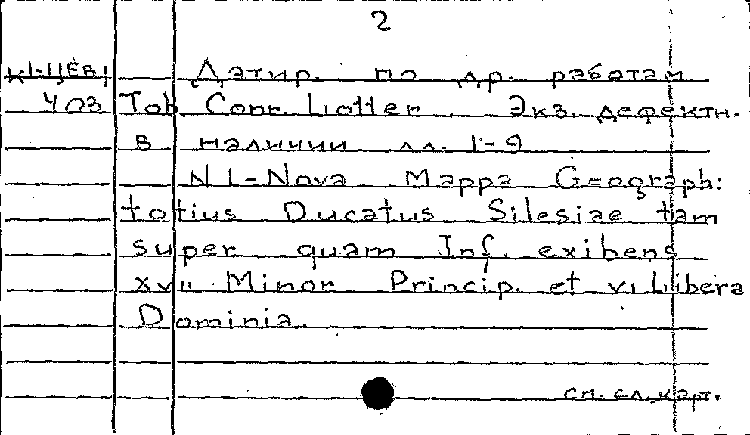 2
Датир. по др. работам
403 Tob. Conr. Lotter. Экз. дефектн.
в наличии лл. 1-9
N 1-Nova Mappa Geograph:
totius Ducatus Silesiae tam
super quam Inf. exibens
XVII Minor Princip. et VI Libera
Dominia.
см. сл. карт.